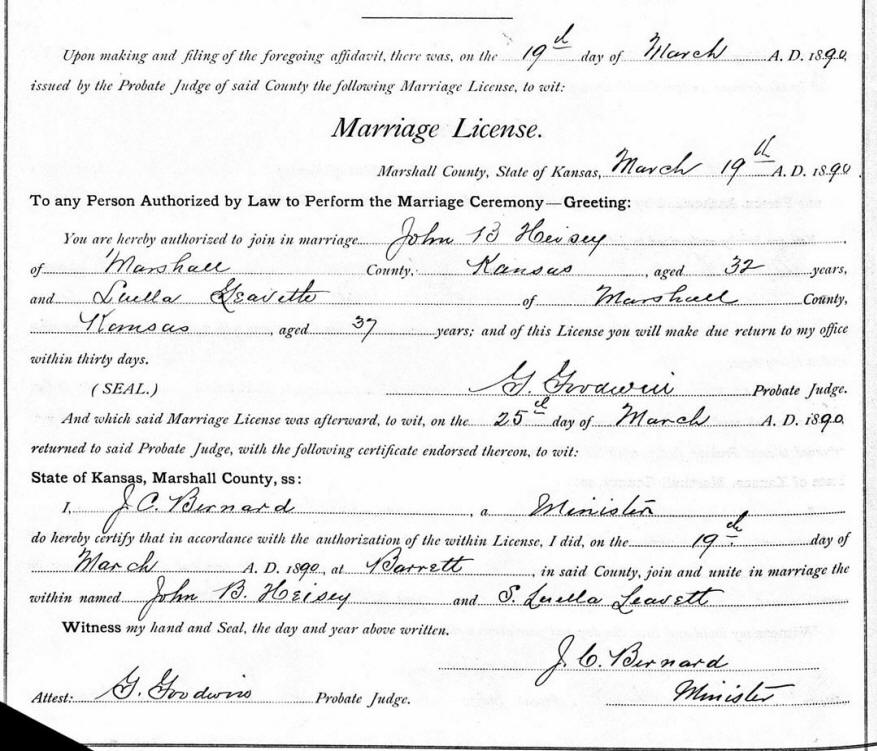 Upon making and filing of the foregoing affidavit, there was, on the 19th day of March A. D. 1890,
issued by the Probate Judge of said County the following Marriage License, to wit:
Marriage License.
Marshall County, State of Kansas, March 19th A. D. 1890.
To any Person Authorized by Law to Perform the Marriage Ceremony—Greeting:
You are hereby authorized to join in marriage John B Heisey,
of Marshall County, Kansas, aged 32 years,
and Luella Leavette of Marshall County,
Kansas, aged 37 years; and of this License you will make due return to my office
within thirty days.
(SEAL.) G. Goodwin Probate Judge.
And which said Marriage License was afterward, to wit, on the 25th day of March A. D. 1890,
returned to said Probate Judge, with the following certificate endorsed thereon, to wit:
State of Kansas, Marshall County, ss:
I, J. C. Bernard, a Minister
do hereby certify that in accordance with the authorization of the within License, I did, on the 19th day of
March A. D. 1890, at Barrett, in said County, join and unite in marriage the
within named John B. Heisey and S. Luella Leavett
Witness my hand and Seal, the day and year above written.
J. C. Bernard
Attest: G. Goodwin Probate Judge. Minister